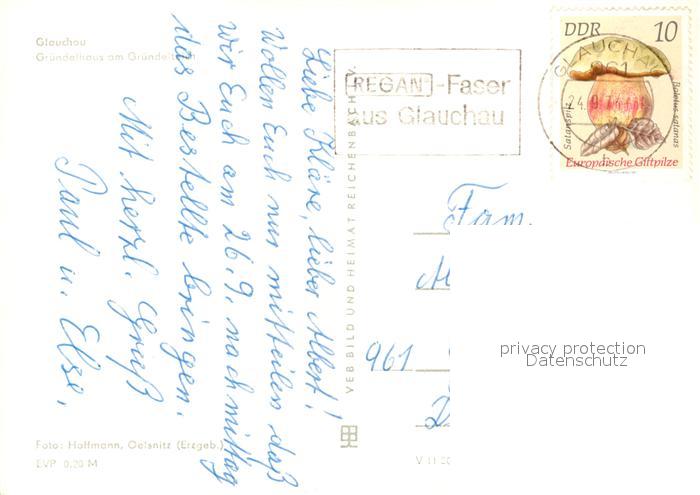 Glauchau
Gründelhaus am Gründelteich
Liebe Kläre, lieber Albert!
Wollen Euch nur mitteilen daß
wir Euch am 26.9. nachmittag
das Bestellte bringen.
Mit herzl. Gruß
Paul u. Else.
Foto: Hoffmann, Oelsnitz (Erzgeb.)
EVP 0,20 M
VEB BILD UND HEIMAT REICHENBACH
V 11 20
REGAN-Faser
aus Glauchau
GLAUCHAU
961
24.9.74
DDR 10
Satanspilz
Boletus satanas
Europäische Giftpilze
Fam.
M
961
privacy protection
Datenschutz